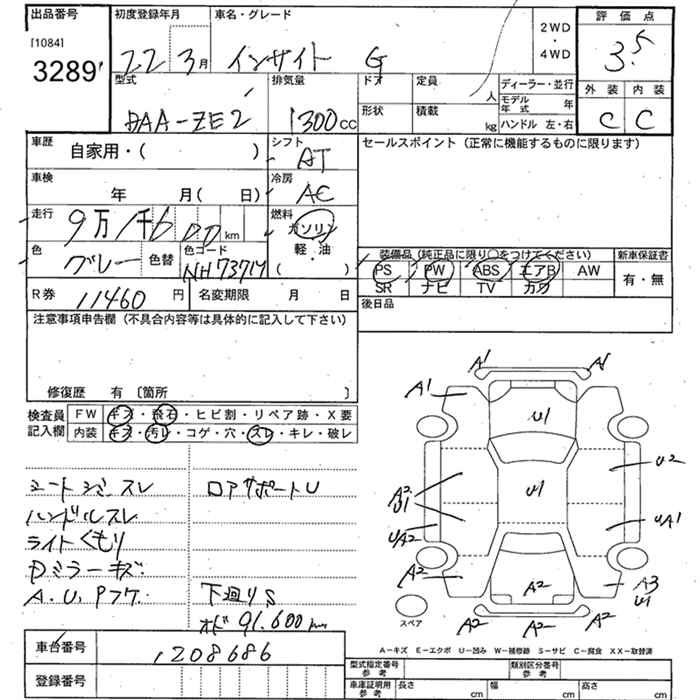 出品番号 初度登録年月 車名・グレード 2WD ・ 4WD 評価点
[1084]
3289
22 3月 インサイト G 3.5
型式 排気量 ドア 定員 人 ディーラー・並行 外装 内装
DAA-ZE2 1300cc 形状 積載 kg モデル年式 年 C C
ハンドル 左・右
車歴 自家用・( ) シフト AT セールスポイント (正常に機能するものに限ります)
車検 年 月( 日) 冷房 AC
走行 9万1千600km 燃料 ガソリン
色 グレー 色替 色コード NH737M 軽・油 ( )
装備品(純正品に限り○をつけてください) 新車保証書
PS PW ABS エアB AW 有・無
SR ナビ TV カワ
R券 11460円 名変期限 月 日 後日品
注意事項申告欄 (不具合内容等は具体的に記入して下さい)
修復歴 有 〔箇所 〕
検査員記入欄 FW キズ・飛石・ヒビ割・リペア跡・X要
内装 キズ・汚レ・コゲ・穴・スレ・キレ・破レ
シートシミスレ ロアサポートU
ハンドルスレ
ライトくもり
Dミラーキズ
A.U.Pフケ 下廻りS
オド 91.600km
A1 A1
A1 U1
A2 U1 U1 U2
UA2 UA1
A2 A2 A3 U1
スペア A2 A2 A2
A-キズ E-エクボ U-凹み W-補修跡 S-サビ C-腐食 XX-取替済
車台番号 1208686
登録番号
型式指定番号 参考 類別区分番号 参考
車庫証明用 参考 長さ cm 幅 cm 高さ cm